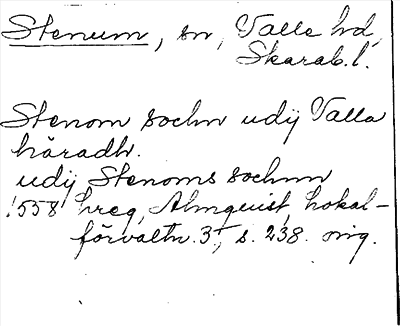 Stenum, sn, Valle hd,
Skarab. l.
Stenom sochn udij Valla
häradh.
udij Stenoms sochnn
1558 hreg, Almquist, Lokal-
förvaltn. 3, s. 238. orig.